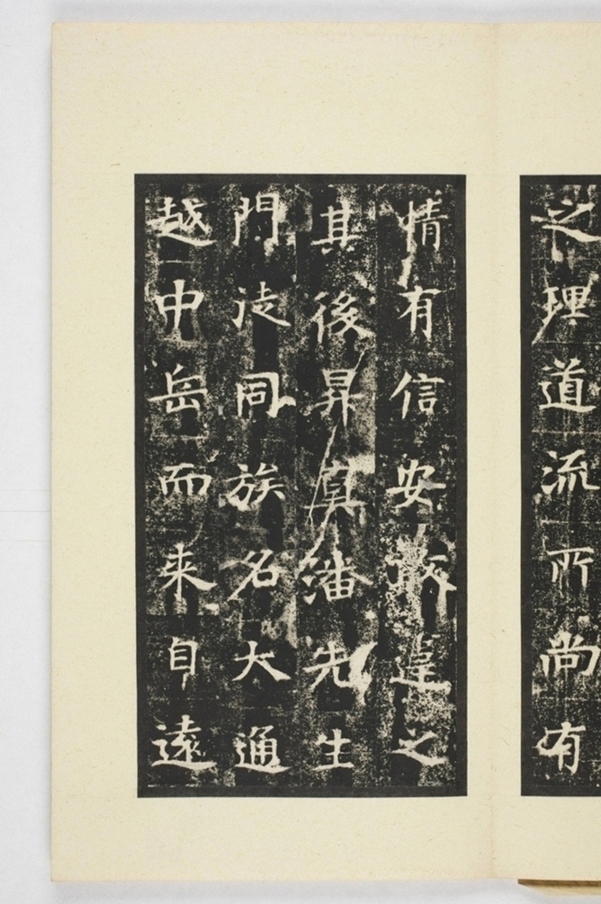 之理道流所尚有
情有信安之
其後昇真潘先生
門徒同族名大通
越中岳而来自遠